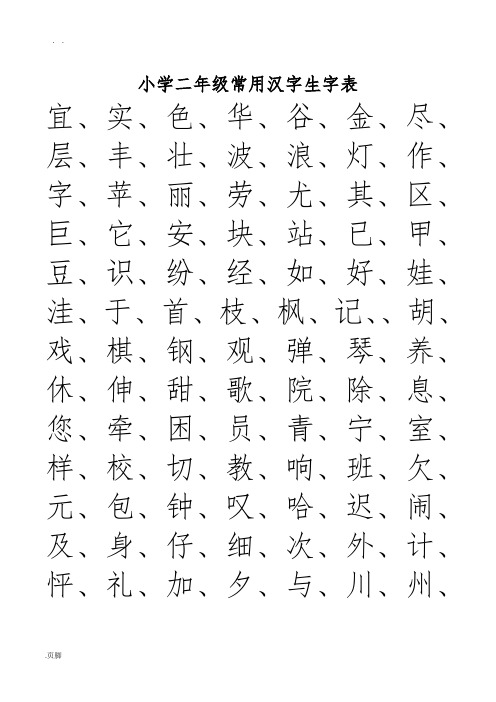 . .
小学二年级常用汉字生字表
宜、实、色、华、谷、金、尽、
层、丰、壮、波、浪、灯、作、
字、苹、丽、劳、尤、其、区、
巨、它、安、块、站、已、甲、
豆、识、纷、经、如、好、娃、
洼、于、首、枝、枫、记、、胡、
戏、棋、钢、观、弹、琴、养、
休、伸、甜、歌、院、除、息、
您、牵、困、员、青、宁、室、
样、校、切、教、响、班、欠、
元、包、钟、叹、哈、迟、闹、
及、身、仔、细、次、外、计、
怦、礼、加、夕、与、川、州、
.页脚